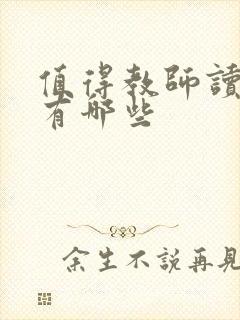 值得教師讀
有哪些
余生不說再見